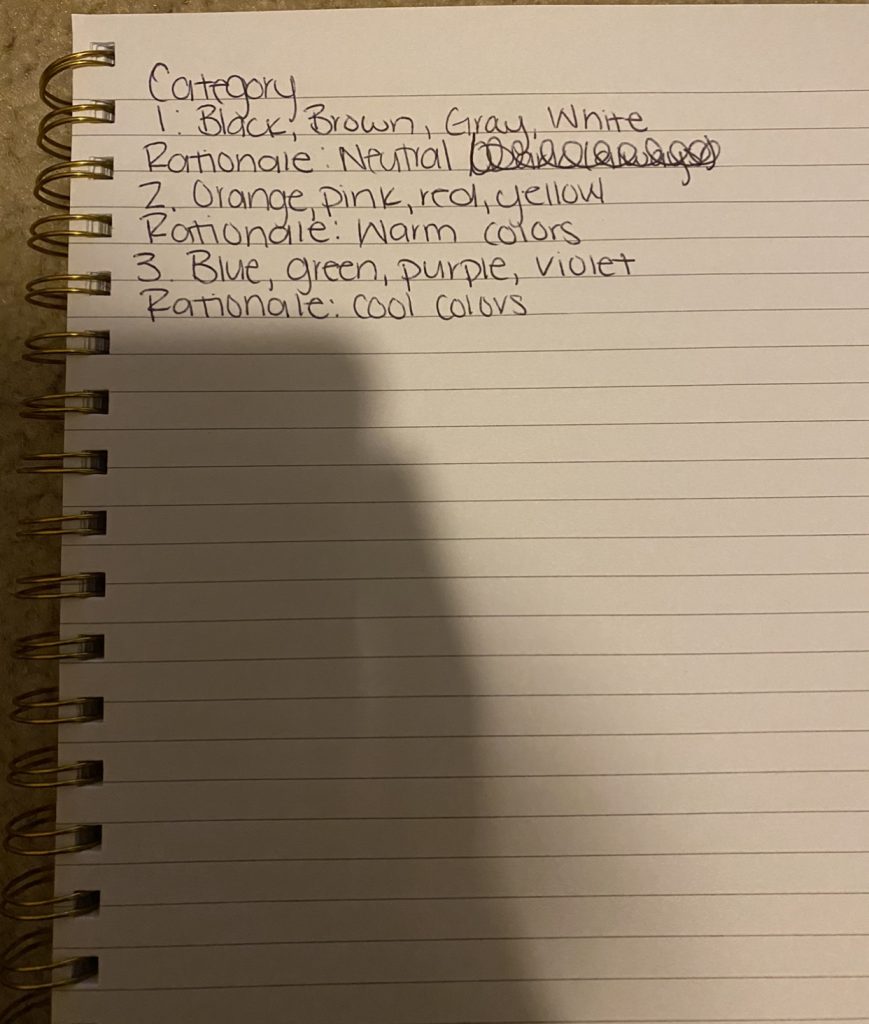 Category
1: Black, Brown, Gray, White
Rationale: Neutral
2. Orange, pink, red, yellow
Rationale: Warm colors
3. Blue, green, purple, violet
Rationale: cool colors